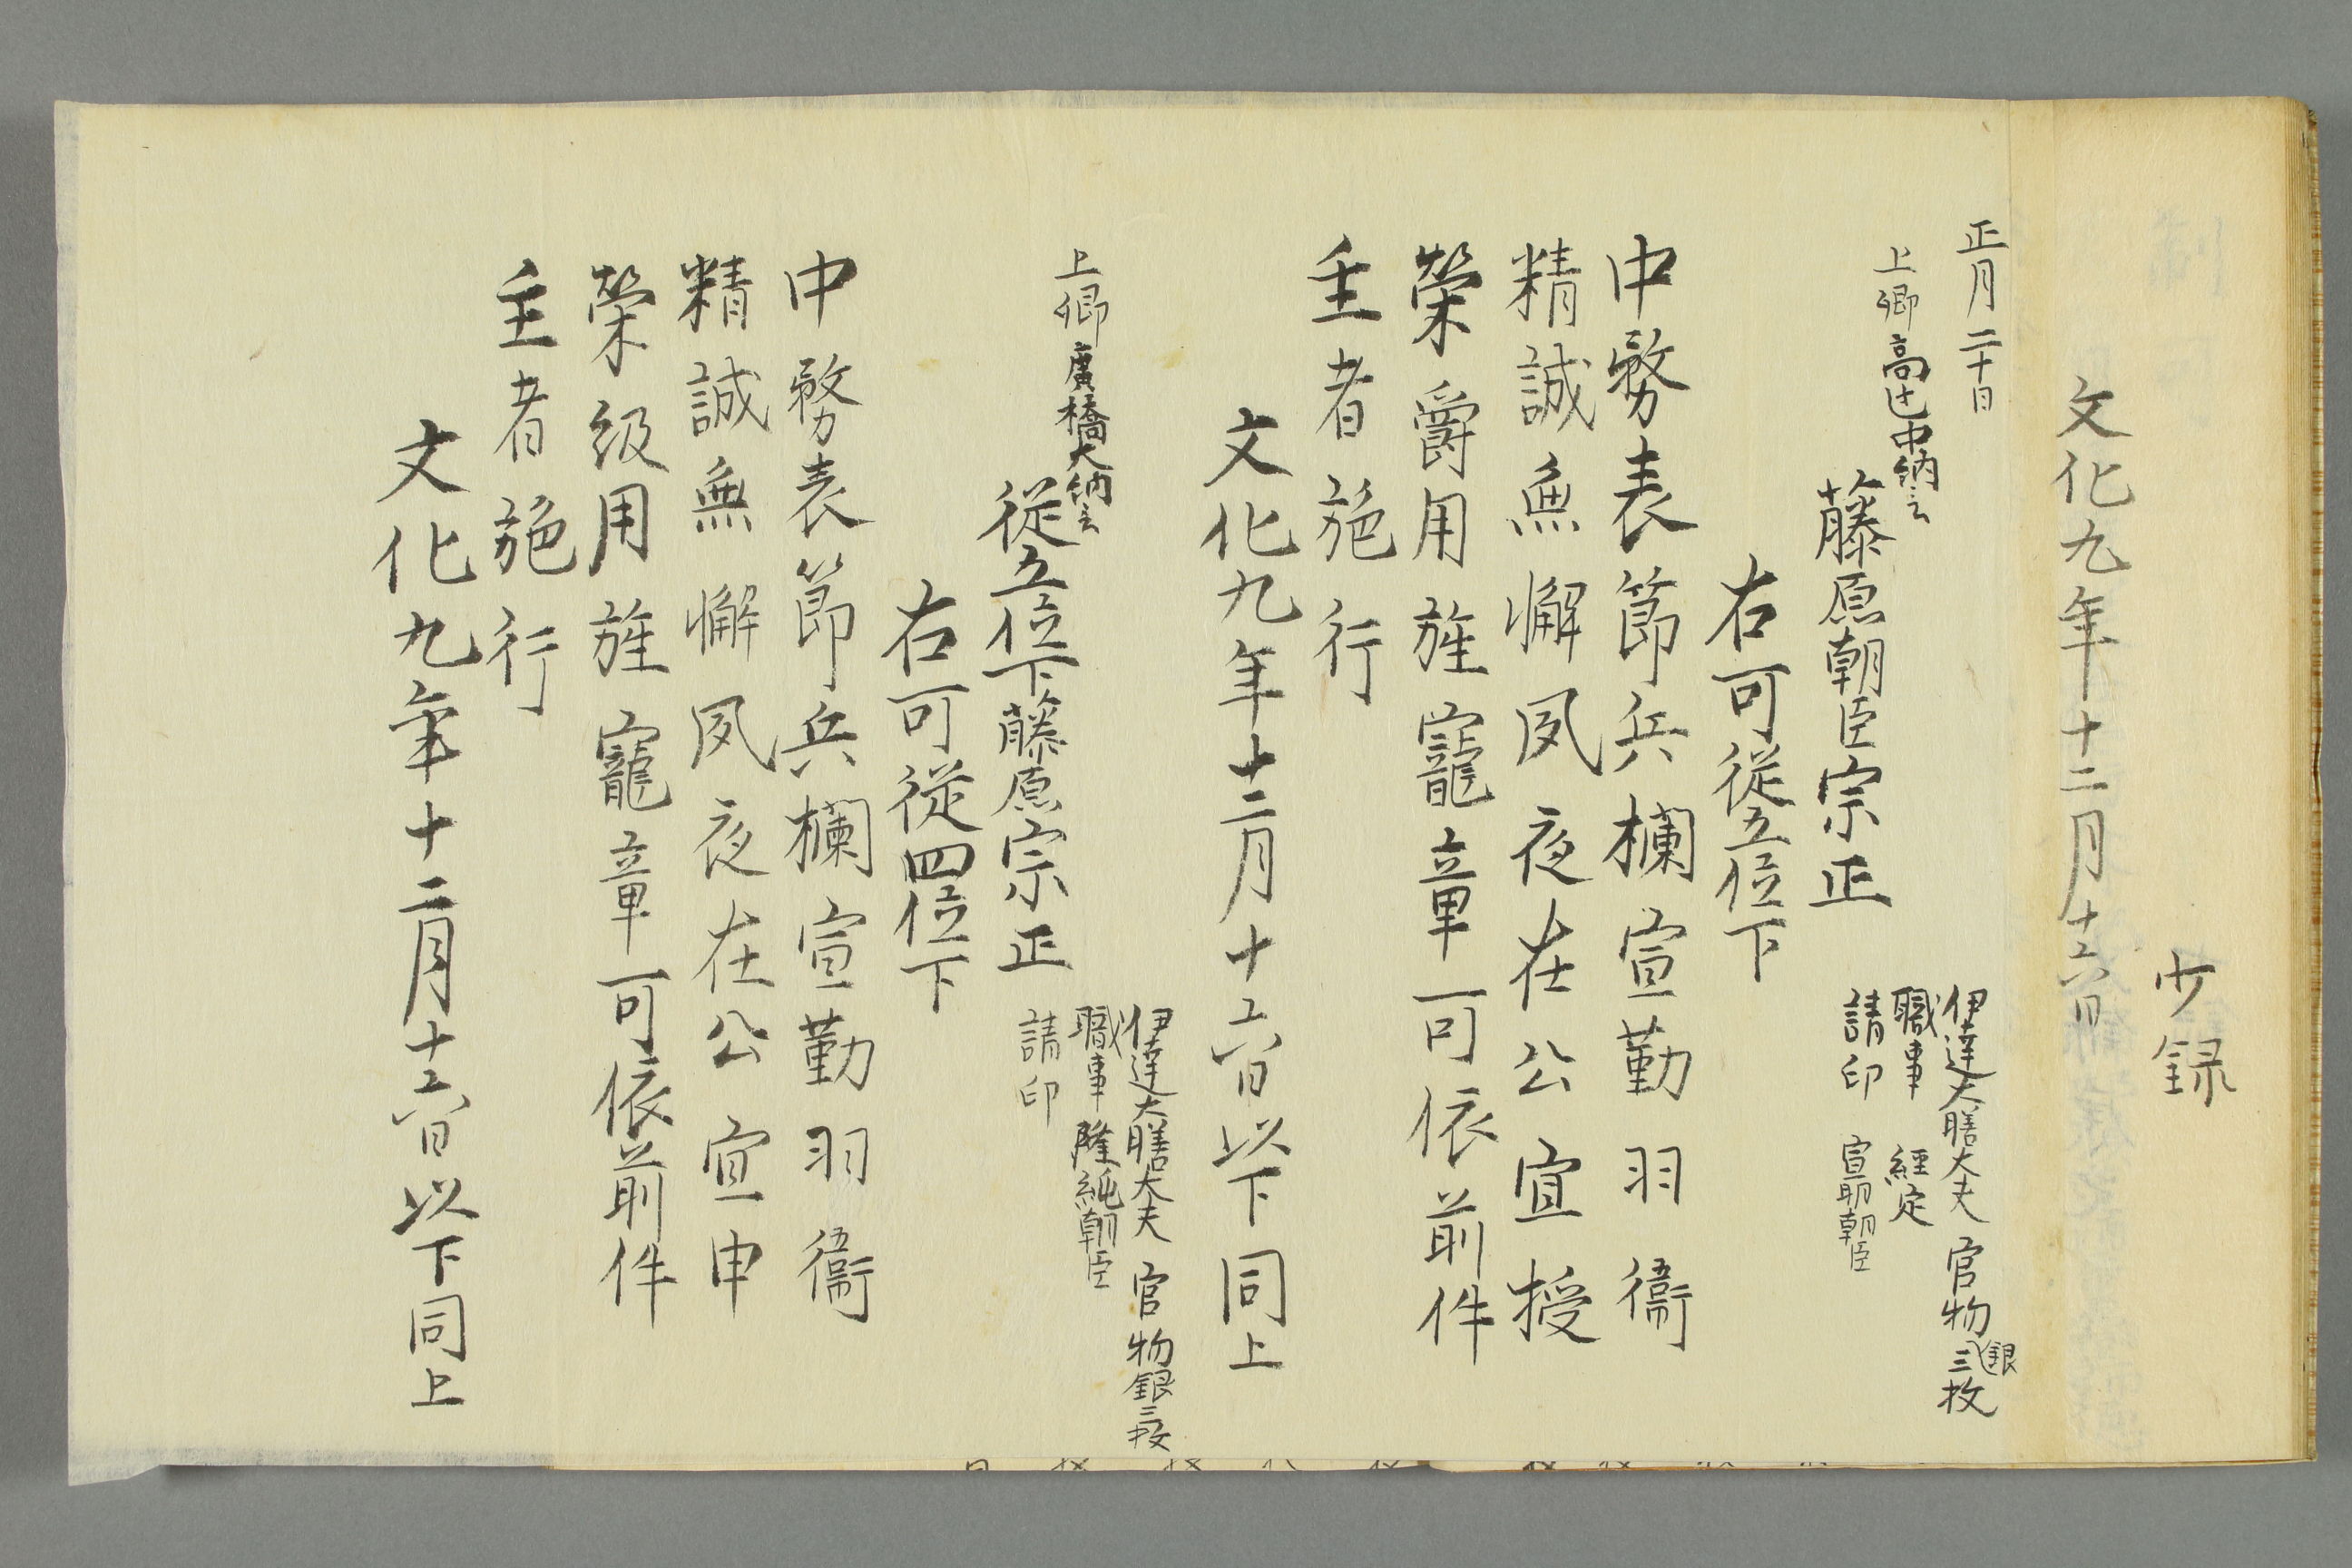 少録
文化九年十二月十六日
正月二十日
上卿 高辻中納言
伊達大膳大夫 官物銀三枚
職事 經定
請印 宣明朝臣
藤原朝臣宗正
右可從五位下
中務表節兵欄宣勤羽衞
精誠無懈夙夜在公宜授
榮爵用旌寵章可依前件
主者施行
文化九年十二月十六日以下同上
上卿 廣橋大納言
伊達大膳大夫 官物銀三枚
職事 隆純朝臣
請印
從五位下藤原宗正
右可從四位下
中務表節兵欄宣勤羽衞
精誠無懈夙夜在公宜申
榮級用旌寵章可依前件
主者施行
文化九年十二月十六日以下同上